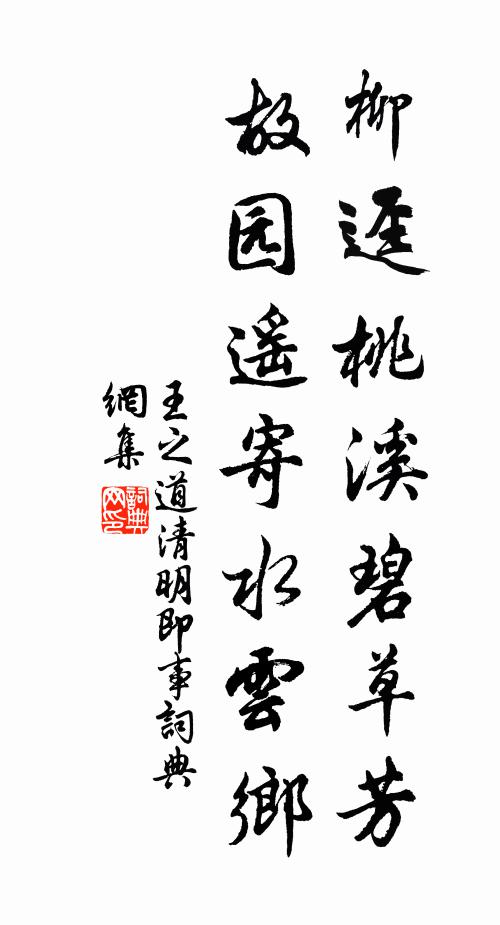 柳逕桃溪碧草芳
故园遥寄水雲鄉
王之道清明即事詞典
網集
詞典網印